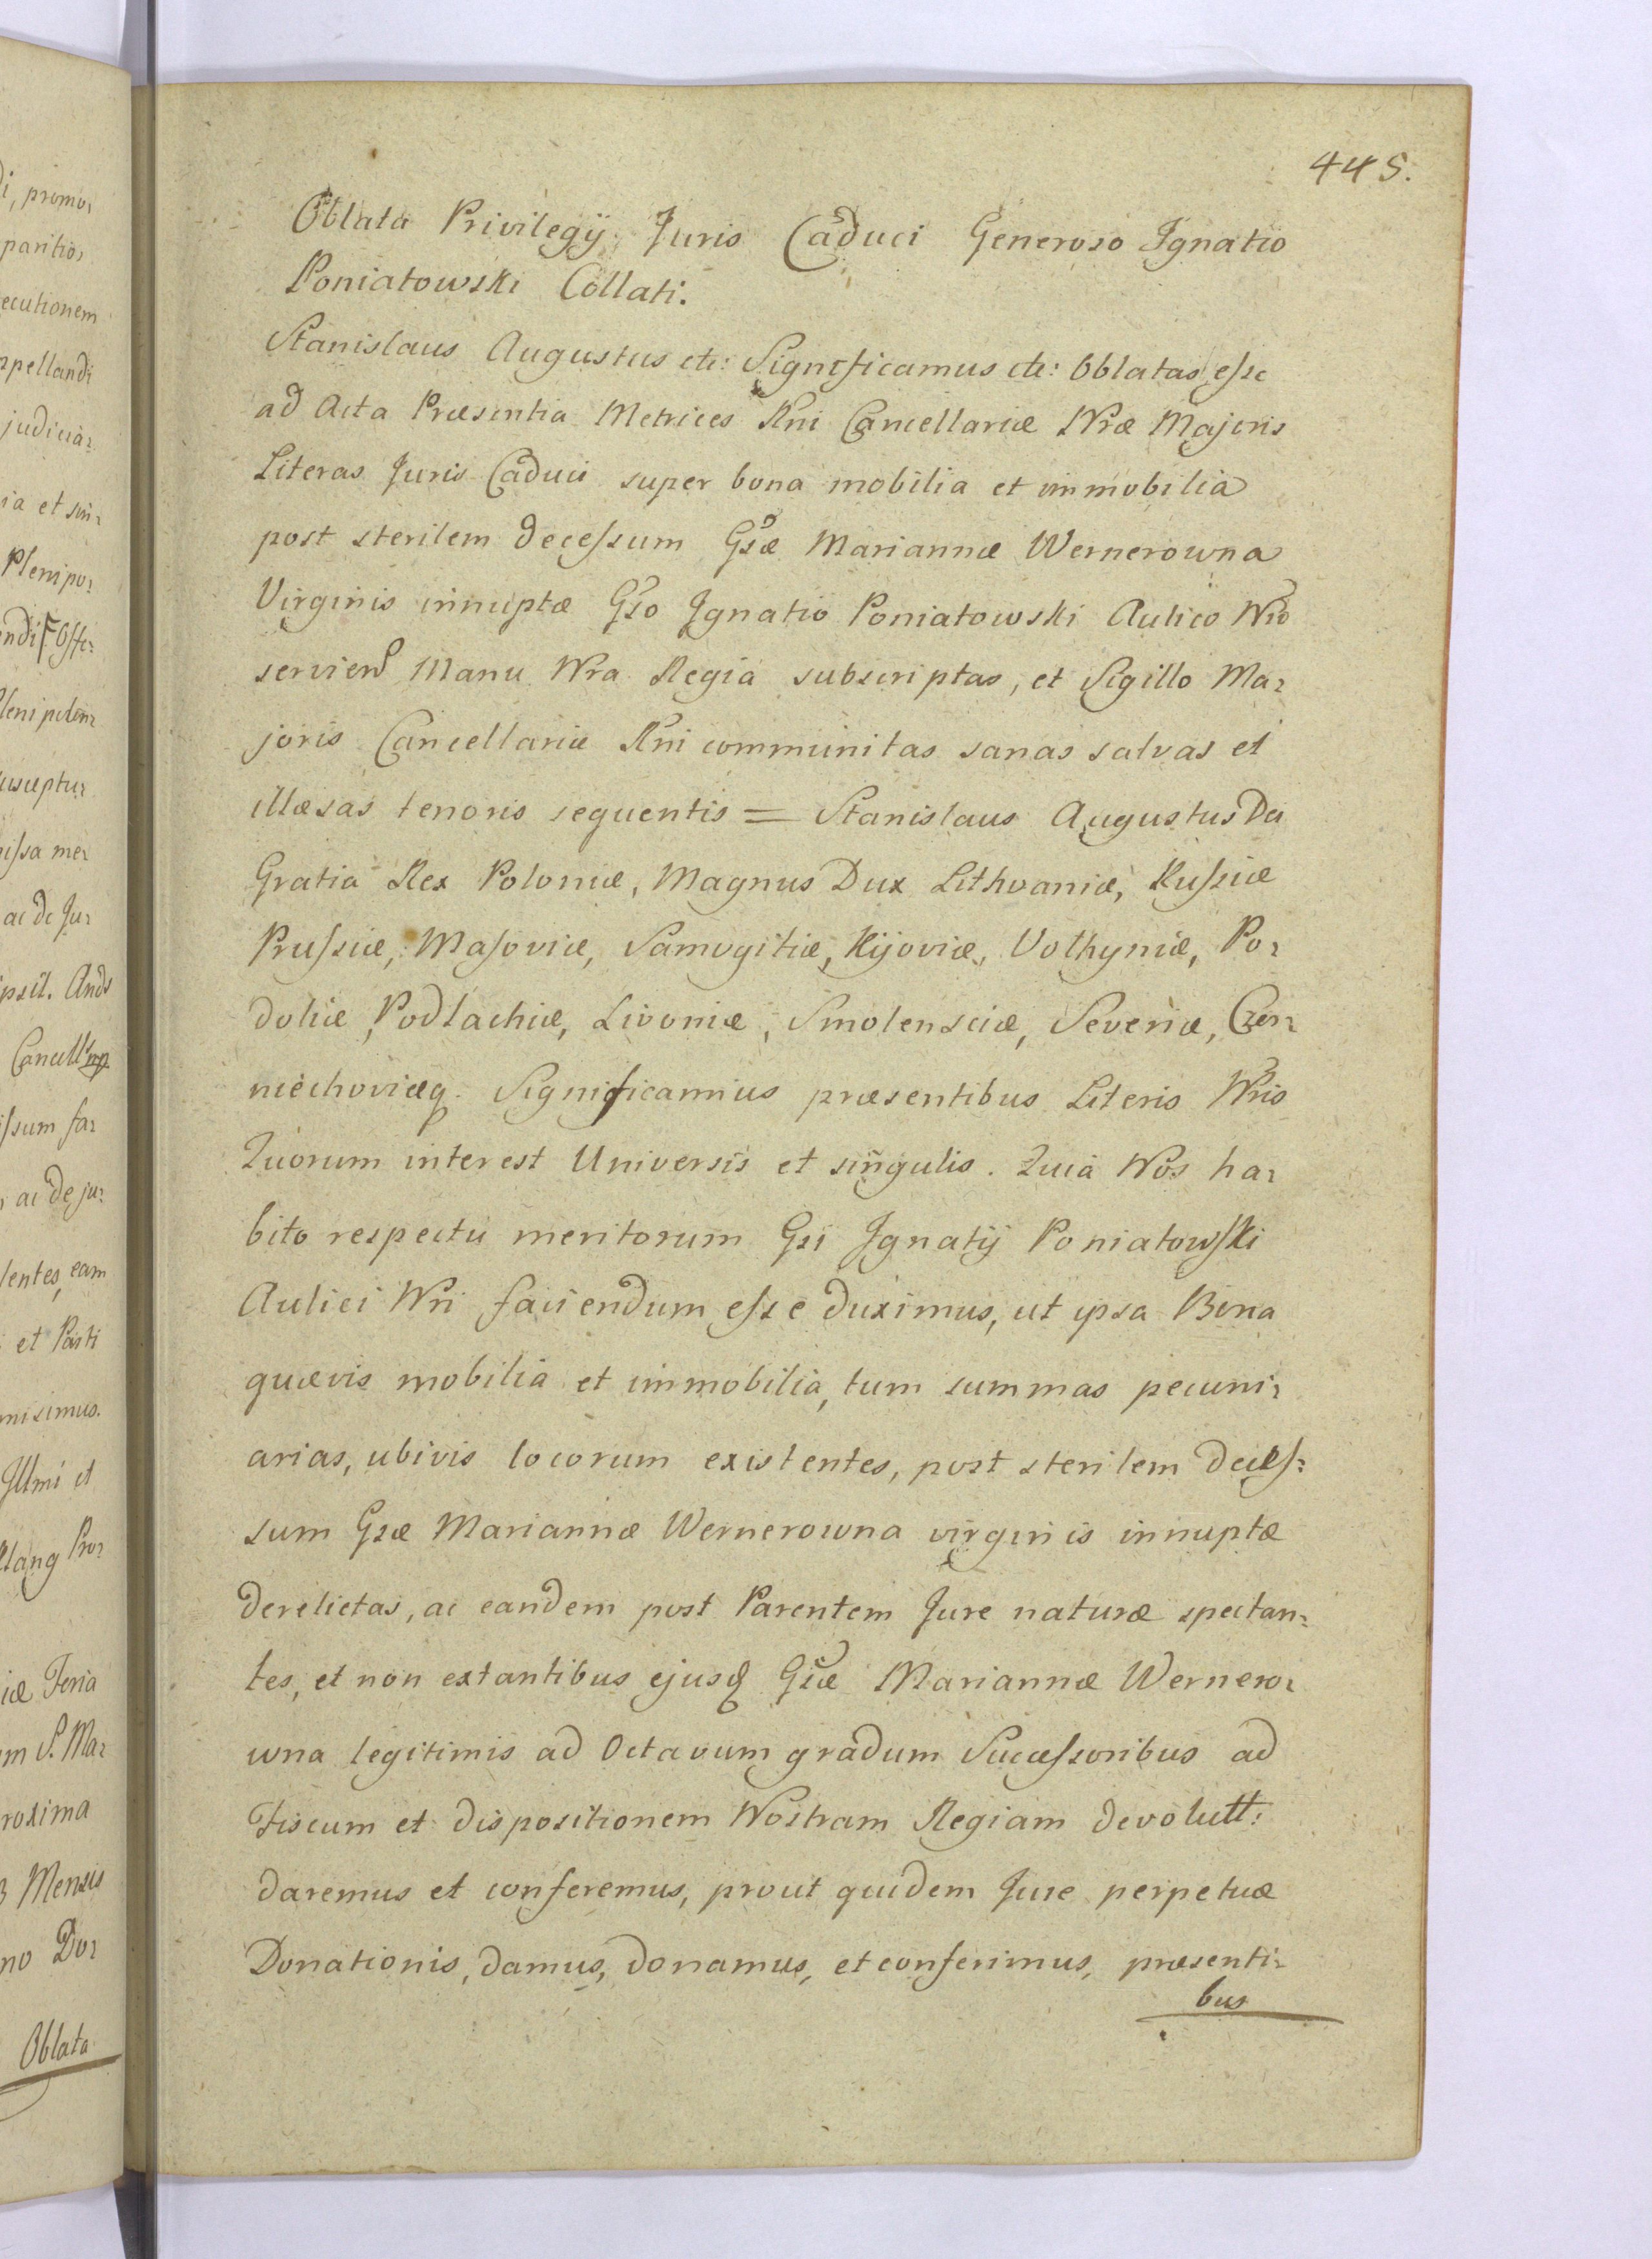 445.
Oblata Privilegij Juris Caduci Generoso Ignatio
Poniatowski Collati.
Stanislaus Augustus etc: Significamus etc: Oblatas esse
ad Acta Præsentia Metrices Rni Cancellariæ Nræ Majoris
Literas Juris Caduci super bona mobilia et immobilia
post sterilem decessum Gsæ Mariannæ Wernerowna
Virginis innuptæ Gso Ignatio Poniatowski Aulico Nro
servien Manu Nra Regia subscriptas, et Sigillo Ma-
joris Cancellariæ Rni communitas sanas salvas et
illæsas tenoris sequentis = Stanislaus Augustus Dei
Gratia Rex Poloniæ, Magnus Dux Lithvaniæ, Russiæ
Prussiæ, Masoviæ, Samogitiæ, Kijoviæ, Volhyniæ, Po-
doliæ, Podlachiæ, Livoniæ, Smolensciæ, Severiæ, Czer-
niechoviæq. Significamus præsentibus Literis Nris
Quorum interest Universis et singulis. Quia Nos ha-
bito respectu meritorum Gsi Ignatij Poniatowski
Aulici Nri faciendum esse duximus, ut ipsa Bona
quævis mobilia et immobilia, tum summas pecuni-
arias, ubivis locorum existentes, post sterilem deces-
sum Gsæ Mariannæ Wernerowna virginis innuptæ
derelictas, ac eandem post Parentem Jure naturæ spectan-
tes, et non extantibus ejusd Gsæ Mariannæ Wernero-
wna legitimis ad Octavum gradum Successoribus ad
Fiscum et dispositionem Nostram Regiam devolutt:
daremus et conferemus, prout quidem Jure perpetuæ
Donationis, damus, donamus, et conferimus, præsenti-
bus